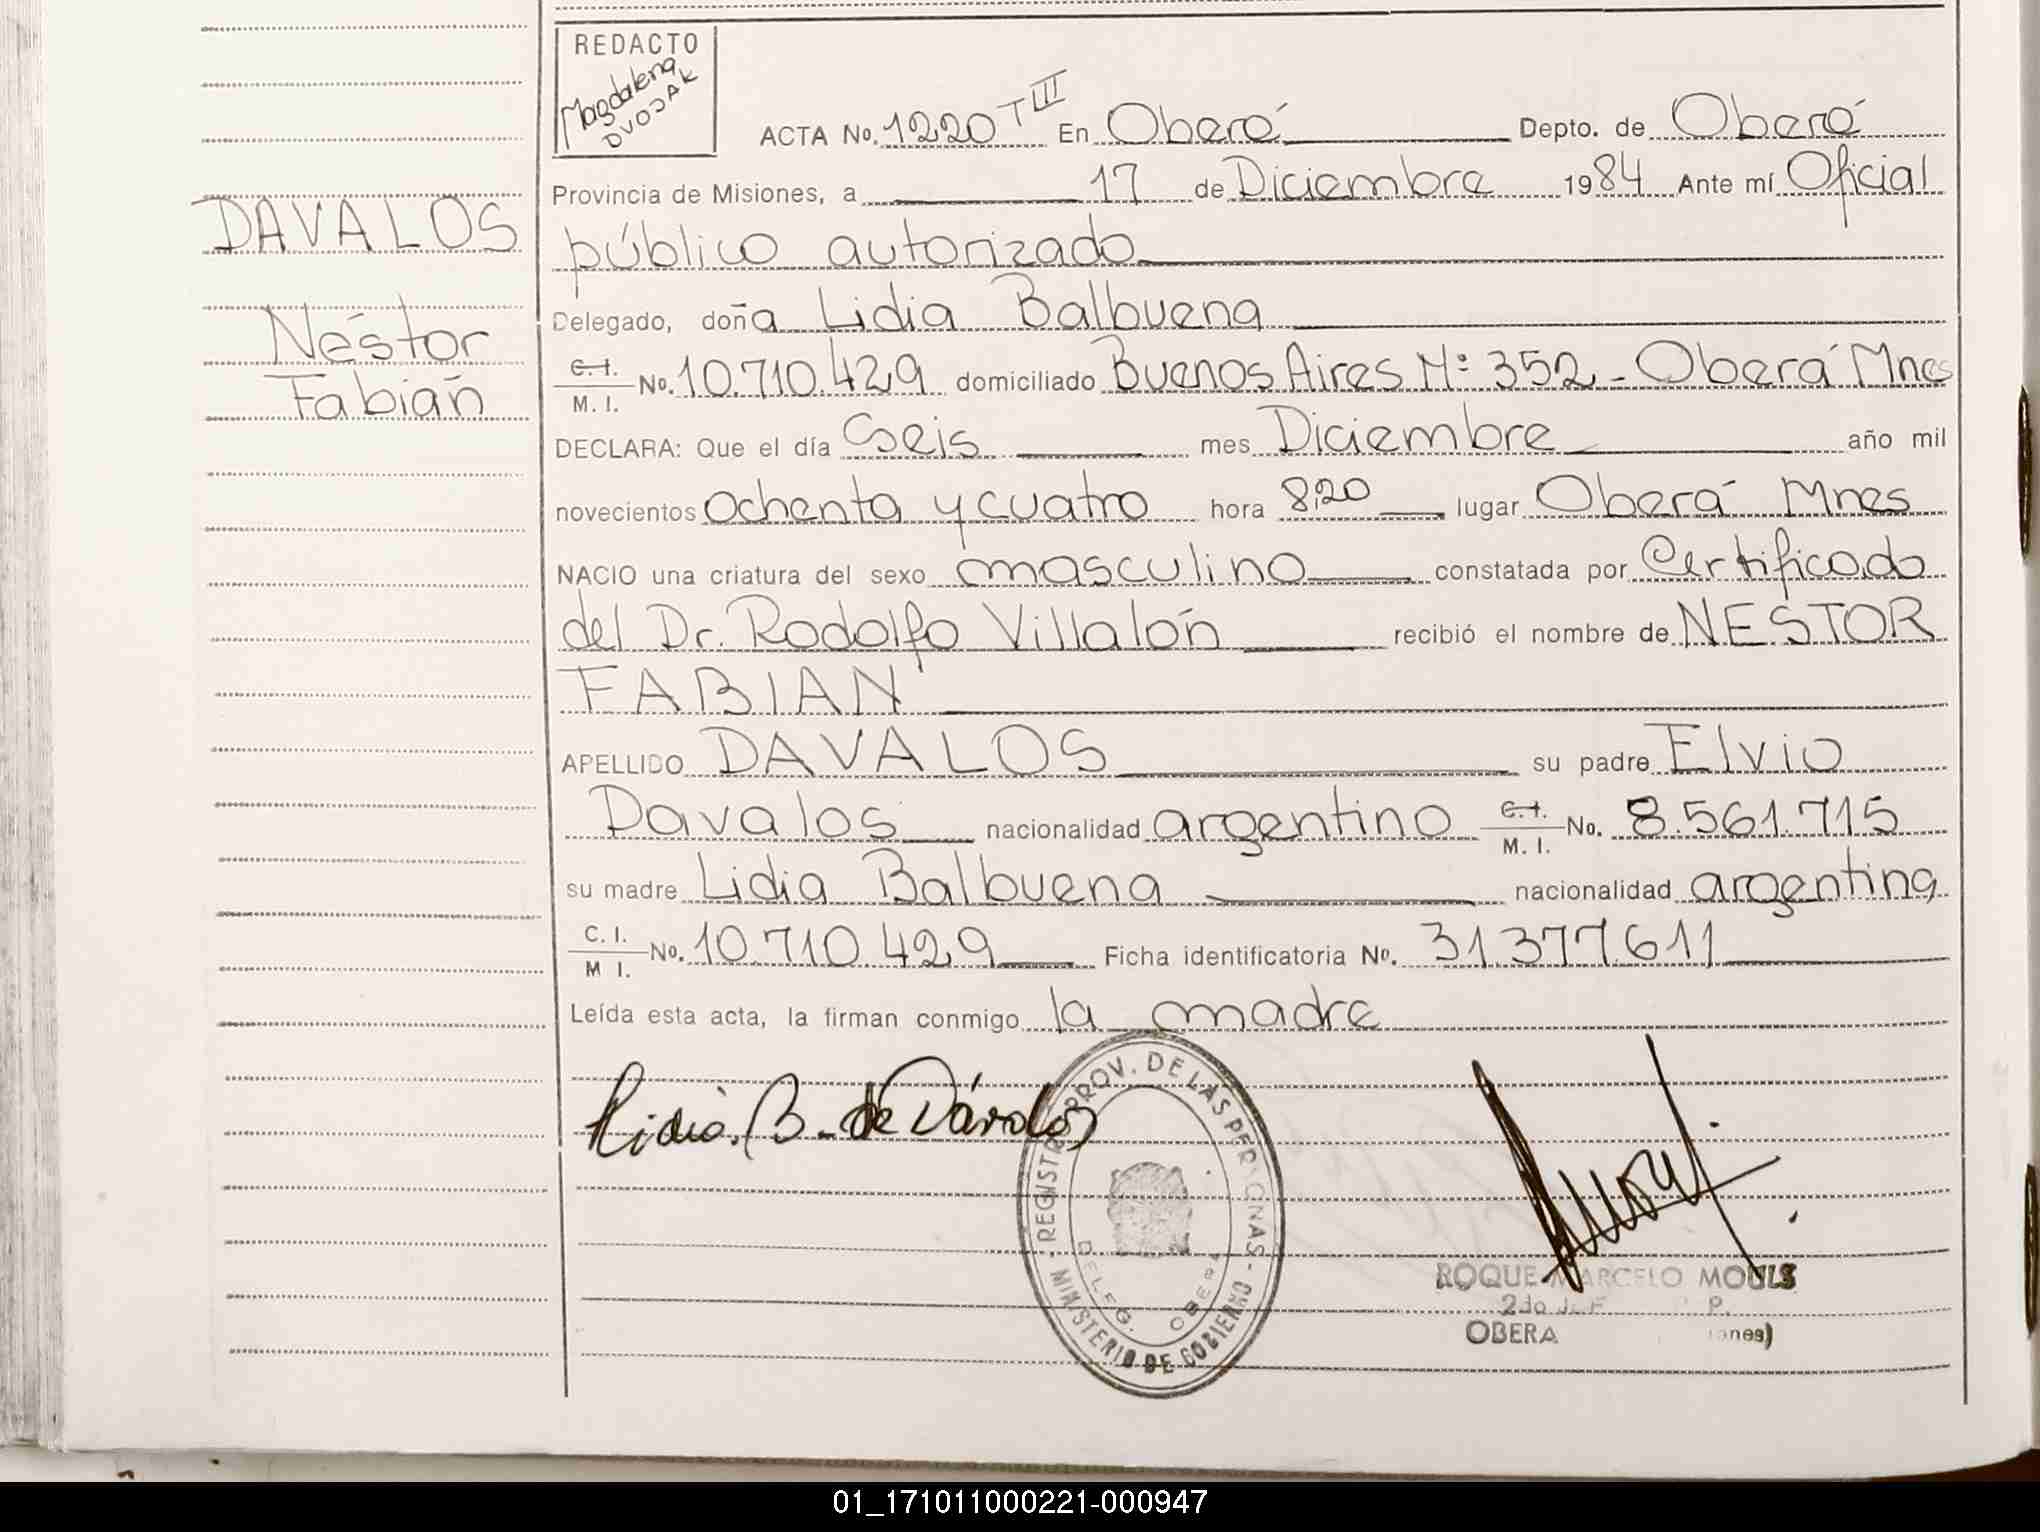 REDACTO
Magdalena
DVOJAK
ACTA No. 1220 T III En Oberá Depto. de Oberá
Provincia de Misiones, a 17 de Diciembre 1984 Ante mí Oficial
público autorizado
Delegado, doña Lidia Balbuena
C.I. M. I. No. 10.710.429 domiciliado Buenos Aires Nº 352 - Oberá Mnes
DECLARA: Que el día Seis mes Diciembre año mil
novecientos ochenta y cuatro hora 8,20 lugar Oberá Mnes
NACIO una criatura del sexo masculino constatada por Certificado
del Dr. Rodolfo Villalón recibió el nombre de NESTOR
FABIAN
APELLIDO DAVALOS su padre Elvio
Davalos nacionalidad argentino C.I. M. I. No. 8.561.715
su madre Lidia Balbuena nacionalidad argentina
C. I. M I. No. 10.710.429 Ficha identificatoria No. 31.377.611
Leída esta acta, la firman conmigo la madre
DAVALOS
Néstor
Fabián
Lidia. B. de Dávalos
REGISTRO PROV. DE LAS PERSONAS - MINISTERIO DE GOBIERNO
DELEG. OBERA
ROQUE MARCELO MOULS
2do
OBERA
01_171011000221-000947